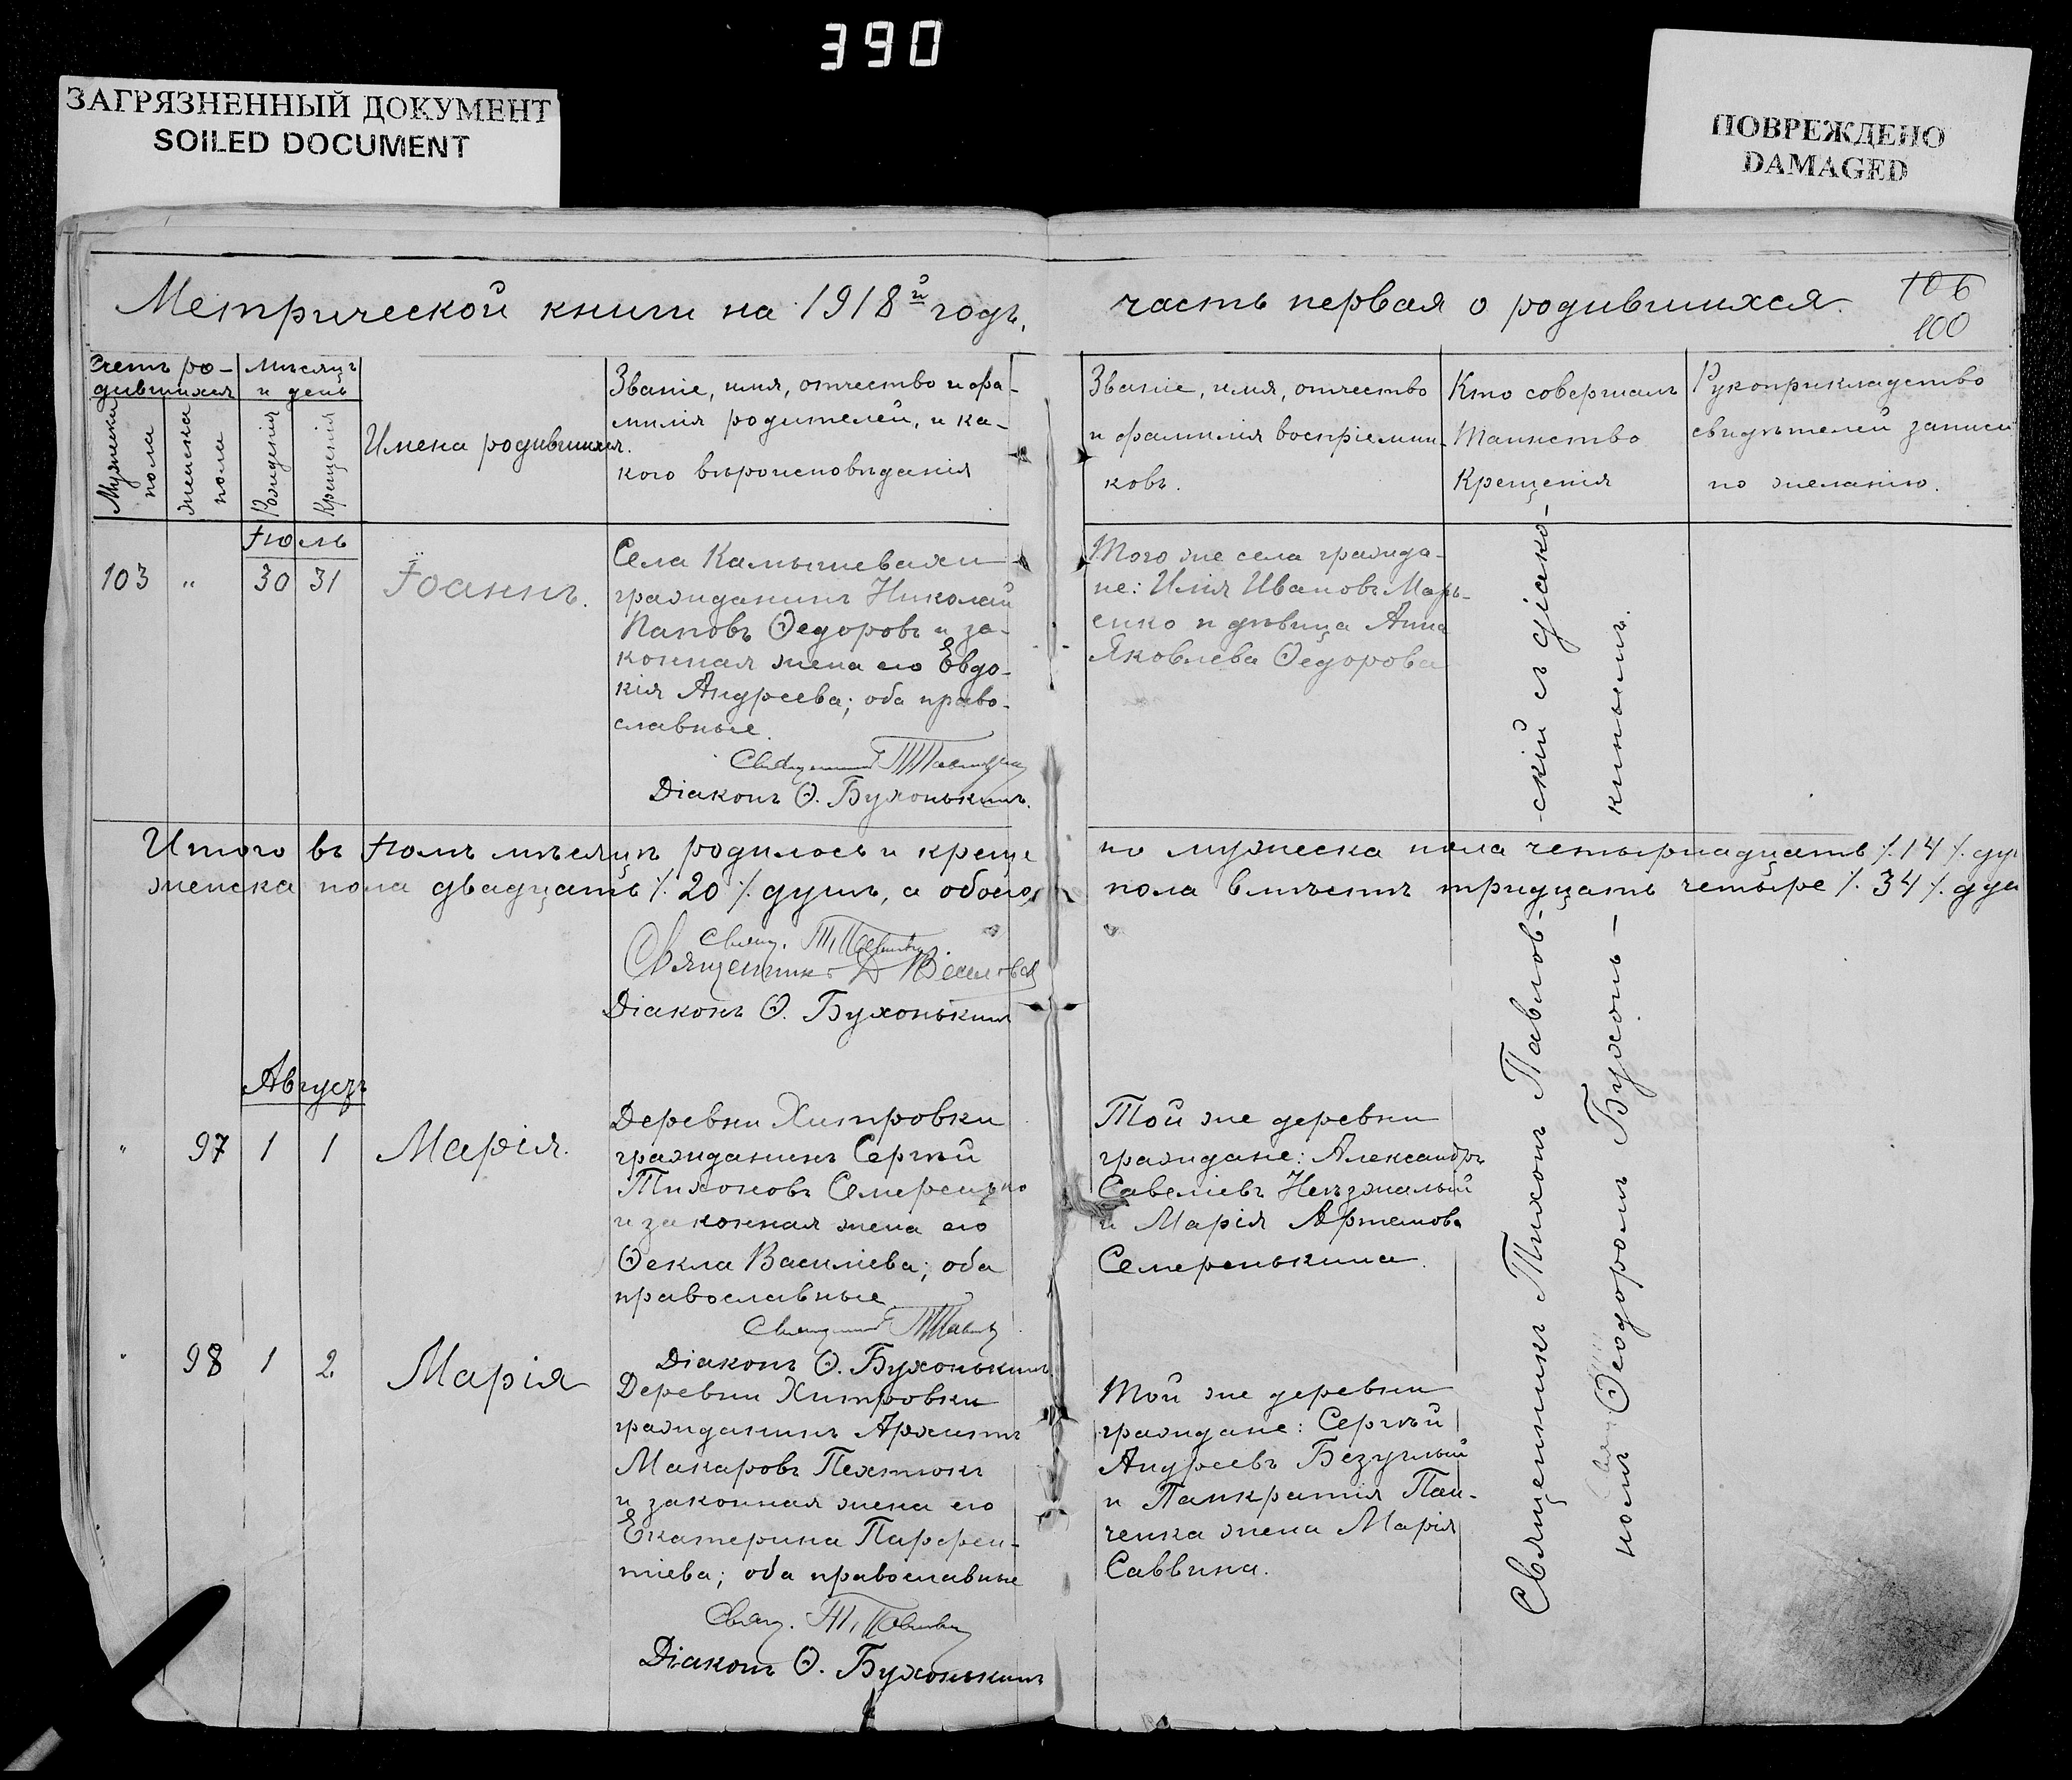 390
ЗАГРЯЗНЕННЫЙ ДОКУМЕНТ
SOILED DOCUMENT
ПОВРЕЖДЕНО
DAMAGED
Метрической книги на 1918й годъ,
часть первая о родившихся.
106
100
Счетъ ро-
дившихся
Мужеска
пола
женска
пола
Мѣсяцъ
и день
Рожденія
Крещенія
Имена родившихся.
Званіе, имя, отчество и фа-
милія родителей, и ка-
кого вѣроисповѣданія
Званіе, имя, отчество
и фамилія воспріемни-
ковъ.
Кто совершалъ
Таинство
Крещенія
Рукоприкладство
свидѣтелей записи
по желанію.
Іюль
103 " 30 31 Іоаннъ.
Села Камышевахи
гражданинъ Николай
Федоровъ и за-
конная жена его Евдо-
кія Андреева; оба право-
славные.
Священникъ
Діаконъ Ѳ. Бухонькинъ.
Того же села гражда-
не: Илія Ивановъ Марь-
енко и дѣвица Анна
Яковлева Ѳедорова
Итого въ Іюлѣ мѣсяцѣ родилось и креще
но мужеска пола четырнадцать ٪ 14 ٪. ду
женска пола двадцать ٪ 20 ٪ душъ, а обоего
пола вмѣстѣ тридцать четыре ٪ 34 ٪. ду
Свящ.
Священникъ
Діаконъ Ѳ. Бухонькинъ
Августъ
" 97 1 1 Марія.
Деревни Хитровки
гражданинъ Сергѣй
Тихоновъ Семеренько
и законная жена его
Ѳекла Василіева; оба
православные
Священникъ
Діаконъ Ѳ. Бухонькинъ.
Той же деревни
граждане: Александръ
Савеліевъ
и Марія Артемова
Семеренькина.
" 98 1 2 Марія
Деревни Хитровки
гражданинъ Архипъ
Макаровъ Пехтюкъ
и законная жена его
Екатерина Парфен-
тіева; оба православные
Свящ.
Діаконъ Ѳ. Бухонькинъ
Той же деревни
граждане: Сергѣй
Андреевъ Безуглый
и Панкратія Пан-
ченка жена Марія
Саввина.
Священникъ Тихонъ Павлов-
скій съ діако-
номъ Ѳеодоромъ Бухонь-
кинымъ.